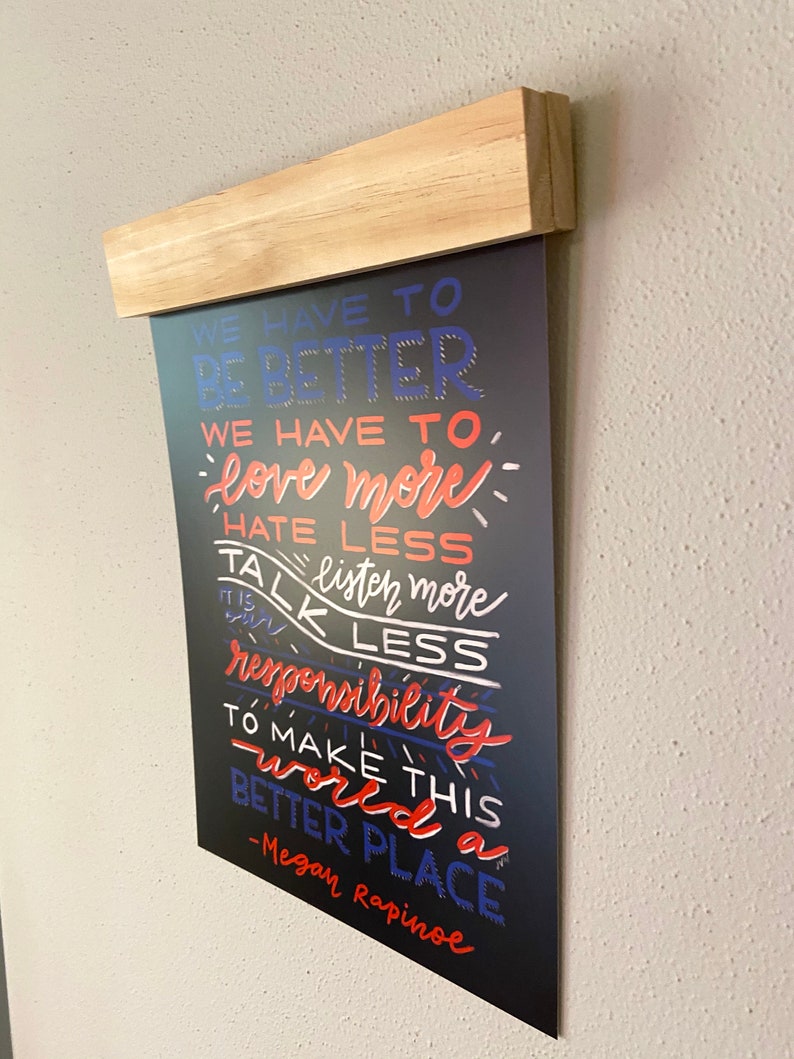 WE HAVE TO
BE BETTER
WE HAVE TO
love more
HATE LESS
listen more
TALK LESS
IT IS
our
responsibility
TO MAKE THIS
world a
BETTER PLACE
-Megan Rapinoe